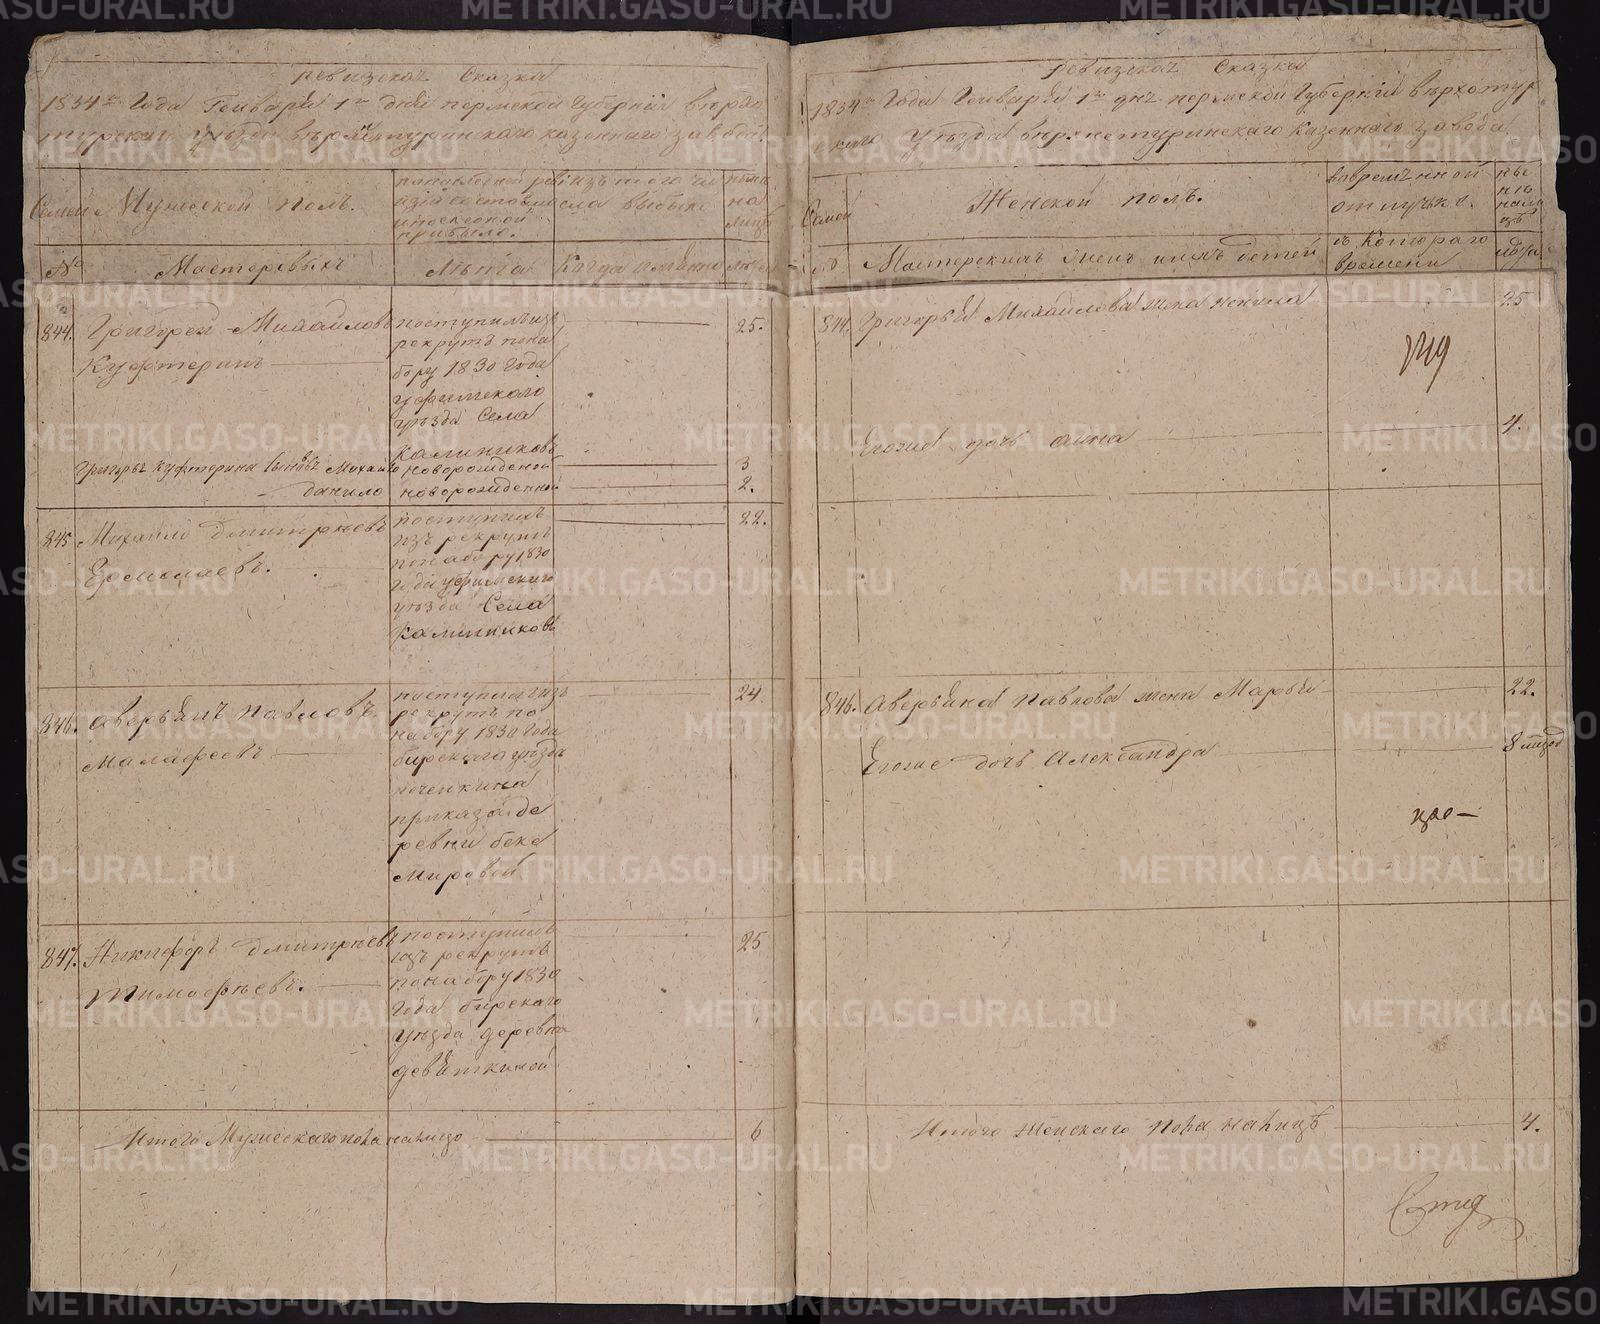 ревизская Сказка
1834го Года Генваря 1го дня пермской Губернии верхо
турскаго уезда верхнетуринскаго казеннаго завода
Семьи
Мужеской полъ.
попоследней реви
зии состояло
и после оной
прибыло.
изъ того чи
сла выбыло
ныне
на
лицо
№
Мастеровыхъ
Лѣта
Когда имянно
Лѣта
844.
Григорей Михайловъ
Куфтеринъ
поступилъ изъ
рекрутъ по на
бору 1830 Года
уфимскаго
уѣзда Села
Калиниковъ
25.
Григорья Куфтерина Сыновья Михайло
новорожденой
3
данило
новорожденой
2.
845
Михайло дмитрѣевъ
Ермолаевъ.
поступилъ
изъ рекрутъ
по набору 1830
года уфимскаго
уѣзда Села
Калиниковъ
22.
846.
Аверьянъ Павловъ
Малафеевъ
поступилъ изъ
рекрутъ по
набору 1830 Года
бирскаго уѣзда
приказа де
ревни беке
Мировой
24
847.
Никифоръ дмитрѣевъ
Тимофѣевъ.
поступилъ
изъ рекрутъ
по набору 1830
Года бирскаго
уѣзда деревни
девяткиной
25
Итого Мужескаго пола налицо
6
ревизская Сказка
1834го Года Генваря 1го дня пермской Губернии верхотур
скаго уѣзда верхнетуринскаго казеннаго завода
Семьи
Женской полъ.
вовременной
отлучке.
ны
не
нали
це
№
Мастерскихъ женъ и ихъ детей
съ Котораго
времени
лѣта
844.
Григорья Михайлова жена Ненила
25
Егоже дочь анна
4.
846.
Аверьяна Павлова жена Марья
22.
Егоже дочь Александра
8 месяц
Итого Женскаго пола налицѣ
4.